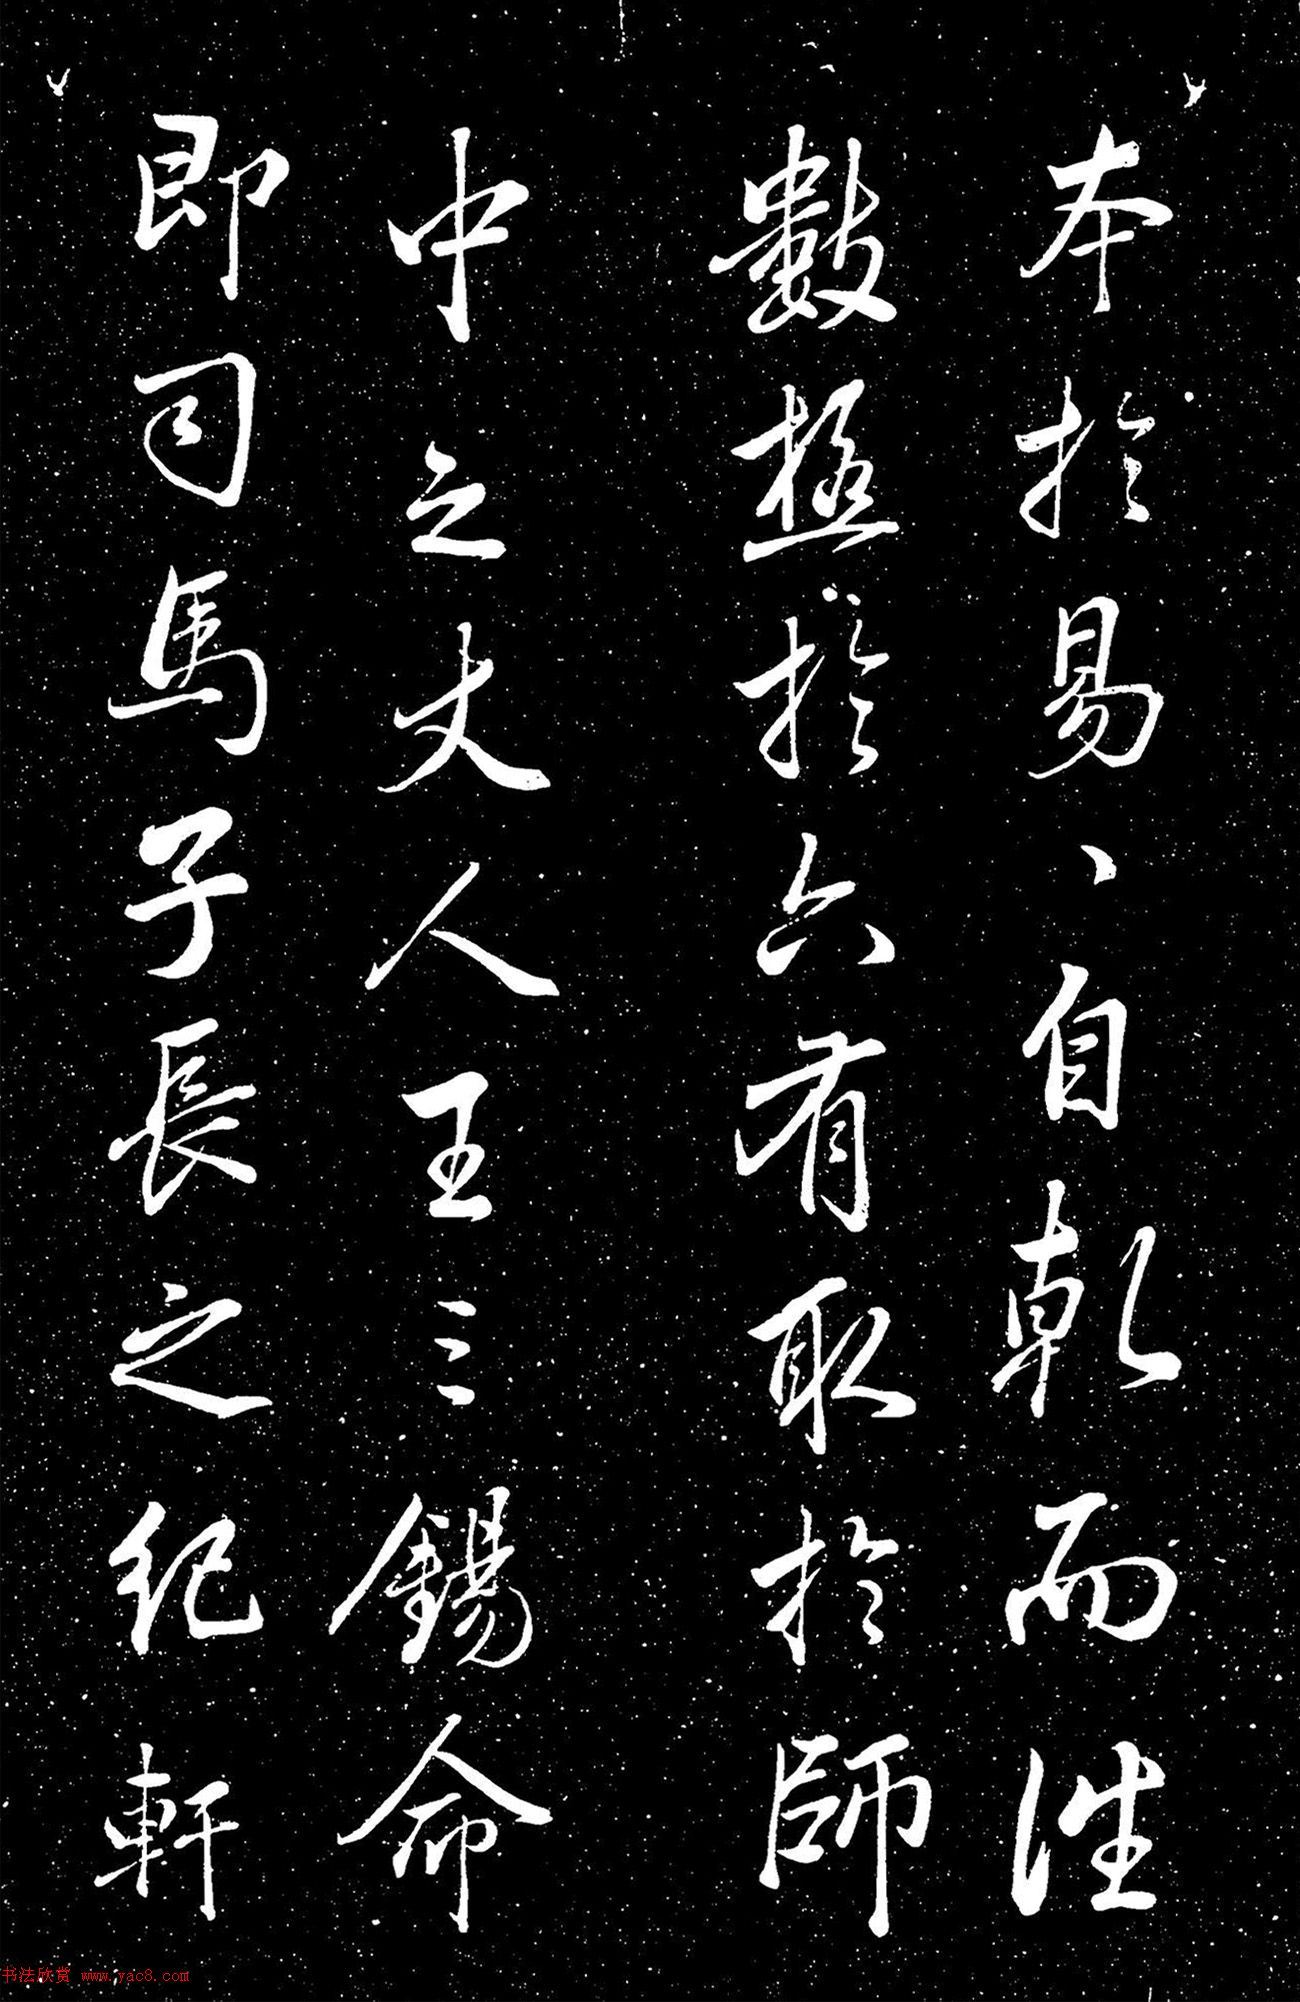 本於易〻自乾而往
數極於六有取於師
中之丈人王三錫命
即司馬子長之紀軒
书法欣赏 www.yac8.com